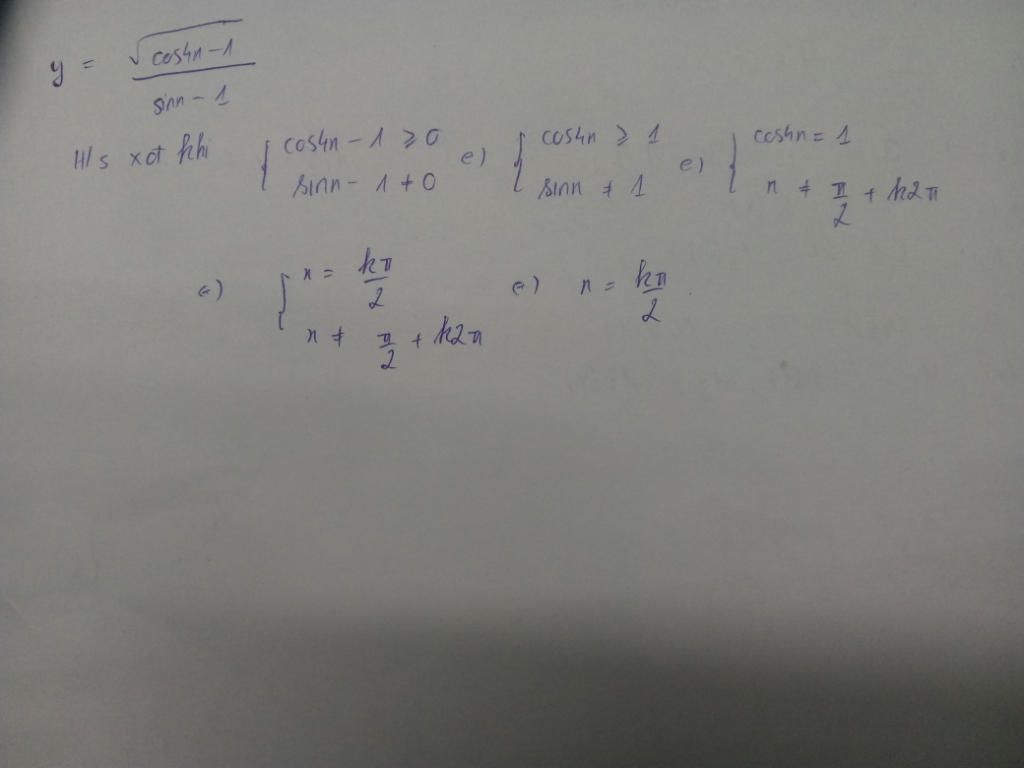 y = √(cos4x - 1) / (sinx - 1)
H/s xđ khi { cos4x - 1 ≥ 0 ; sinx - 1 ≠ 0 ⇔ { cos4x ≥ 1 ; sinx ≠ 1 ⇔ { cos4x = 1 ; x ≠ π/2 + k2π
⇔ { x = kπ/2 ; x ≠ π/2 + k2π ⇔ x = kπ/2.